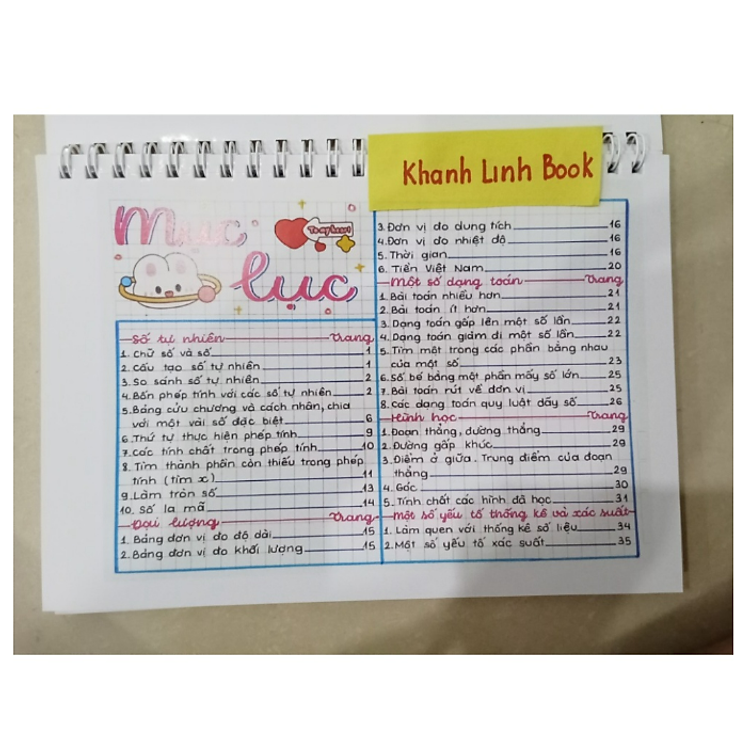 Khanh Linh Book
Mục
lục
To my heart
Số tự nhiên Trang
1. Chữ số và số 1
2. Cấu tạo số tự nhiên 1
3. So sánh số tự nhiên 2
4. Bốn phép tính với các số tự nhiên 2
5. Bảng cửu chương và cách nhân, chia
với một vài số đặc biệt 6
6. Thứ tự thực hiện phép tính 9
7. Các tính chất trong phép tính 10
8. Tìm thành phần còn thiếu trong phép
tính (tìm x) 11
9. Làm tròn số 13
10. Số la mã 14
Đại lượng Trang
1. Bảng đơn vị đo độ dài 15
2. Bảng đơn vị đo khối lượng 15
3. Đơn vị đo dung tích 16
4. Đơn vị đo nhiệt độ 16
5. Thời gian 16
6. Tiền Việt Nam 20
Một số dạng toán Trang
1. Bài toán nhiều hơn 21
2. Bài toán ít hơn 21
3. Dạng toán gấp lên một số lần 22
4. Dạng toán giảm đi một số lần 22
5. Tìm một trong các phần bằng nhau
của một số 23
6. Số bé bằng một phần mấy số lớn 25
7. Bài toán rút về đơn vị 25
8. Các dạng toán quy luật dãy số 26
Hình học Trang
1. Đoạn thẳng, đường thẳng 29
2. Đường gấp khúc 29
3. Điểm ở giữa. Trung điểm của đoạn
thẳng 29
4. Góc 30
5. Tính chất các hình đã học 31
Một số yếu tố thống kê và xác suất
1. Làm quen với thống kê số liệu 34
2. Một số yếu tố xác suất 35